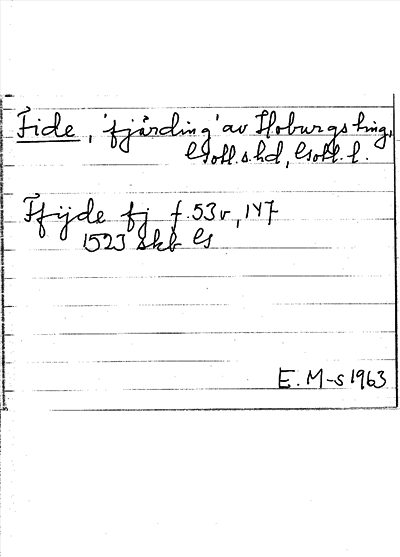 Fide, 'fjärding' av Hoburgs ting,
Gotl. s. hd, Gotl. l.
Ffijde fj f. 53v, 147
1523 Skb G
E. M-s 1963